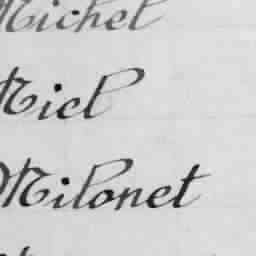 Michel
Miel
Milonet